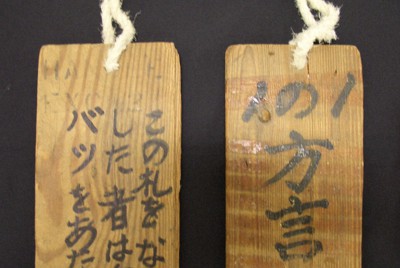 この札をな
した者は
バツをあた
1の
方言